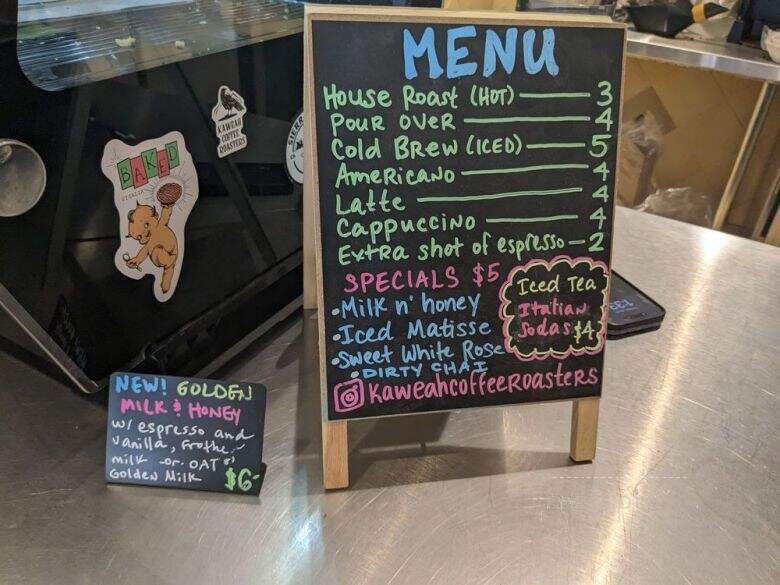 MENU
House Roast (HOT) 3
Pour Over 4
Cold Brew (ICED) 5
Americano 4
Latte 4
Cappuccino 4
Extra shot of espresso 2
SPECIALS $5
•Milk n' honey
•Iced Matisse
•Sweet White Rose
•DIRTY CHAI
Iced Tea
Italian
Sodas $4
kaweahcoffeeroasters
NEW! GOLDEN
MILK & HONEY
w/ espresso and
vanilla, frothe
milk -or- OAT
Golden Milk $6-
BAKED
KAWEAH
COFFEE
ROASTERS